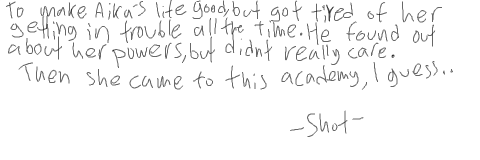 to make Aika's life good, but got tired of her
getting in trouble all the time. He found out
about her powers, but didnt really care.
Then she came to this academy, I guess..
-Shot-